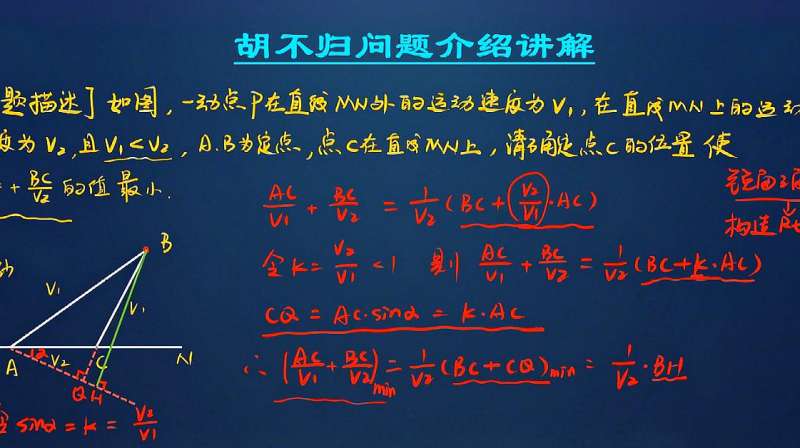 胡不归问题介绍讲解
题描述] 如图, 一动点P在直线MN外的运动速度为V₁, 在直线MN上的运动
度为V₂, 且V₁<V₂, A.B为定点, 点C在直线MN上, 请确定点C的位置使
+ BC/V₂ 的值最小.
AC/V₁ + BC/V₂ = 1/V₂ (BC + (V₂/V₁)·AC)
构造
令k = V₂/V₁ < 1 则 AC/V₁ + BC/V₂ = 1/V₂ (BC+k·AC)
CQ = AC·sinα = k·AC
∴ (AC/V₁ + BC/V₂)min = 1/V₂ (BC+CQ)min = 1/V₂ · BH
B
V₁
V₁
A
α
V₂
C
N
Q H
sinα = k = V₂/V₁